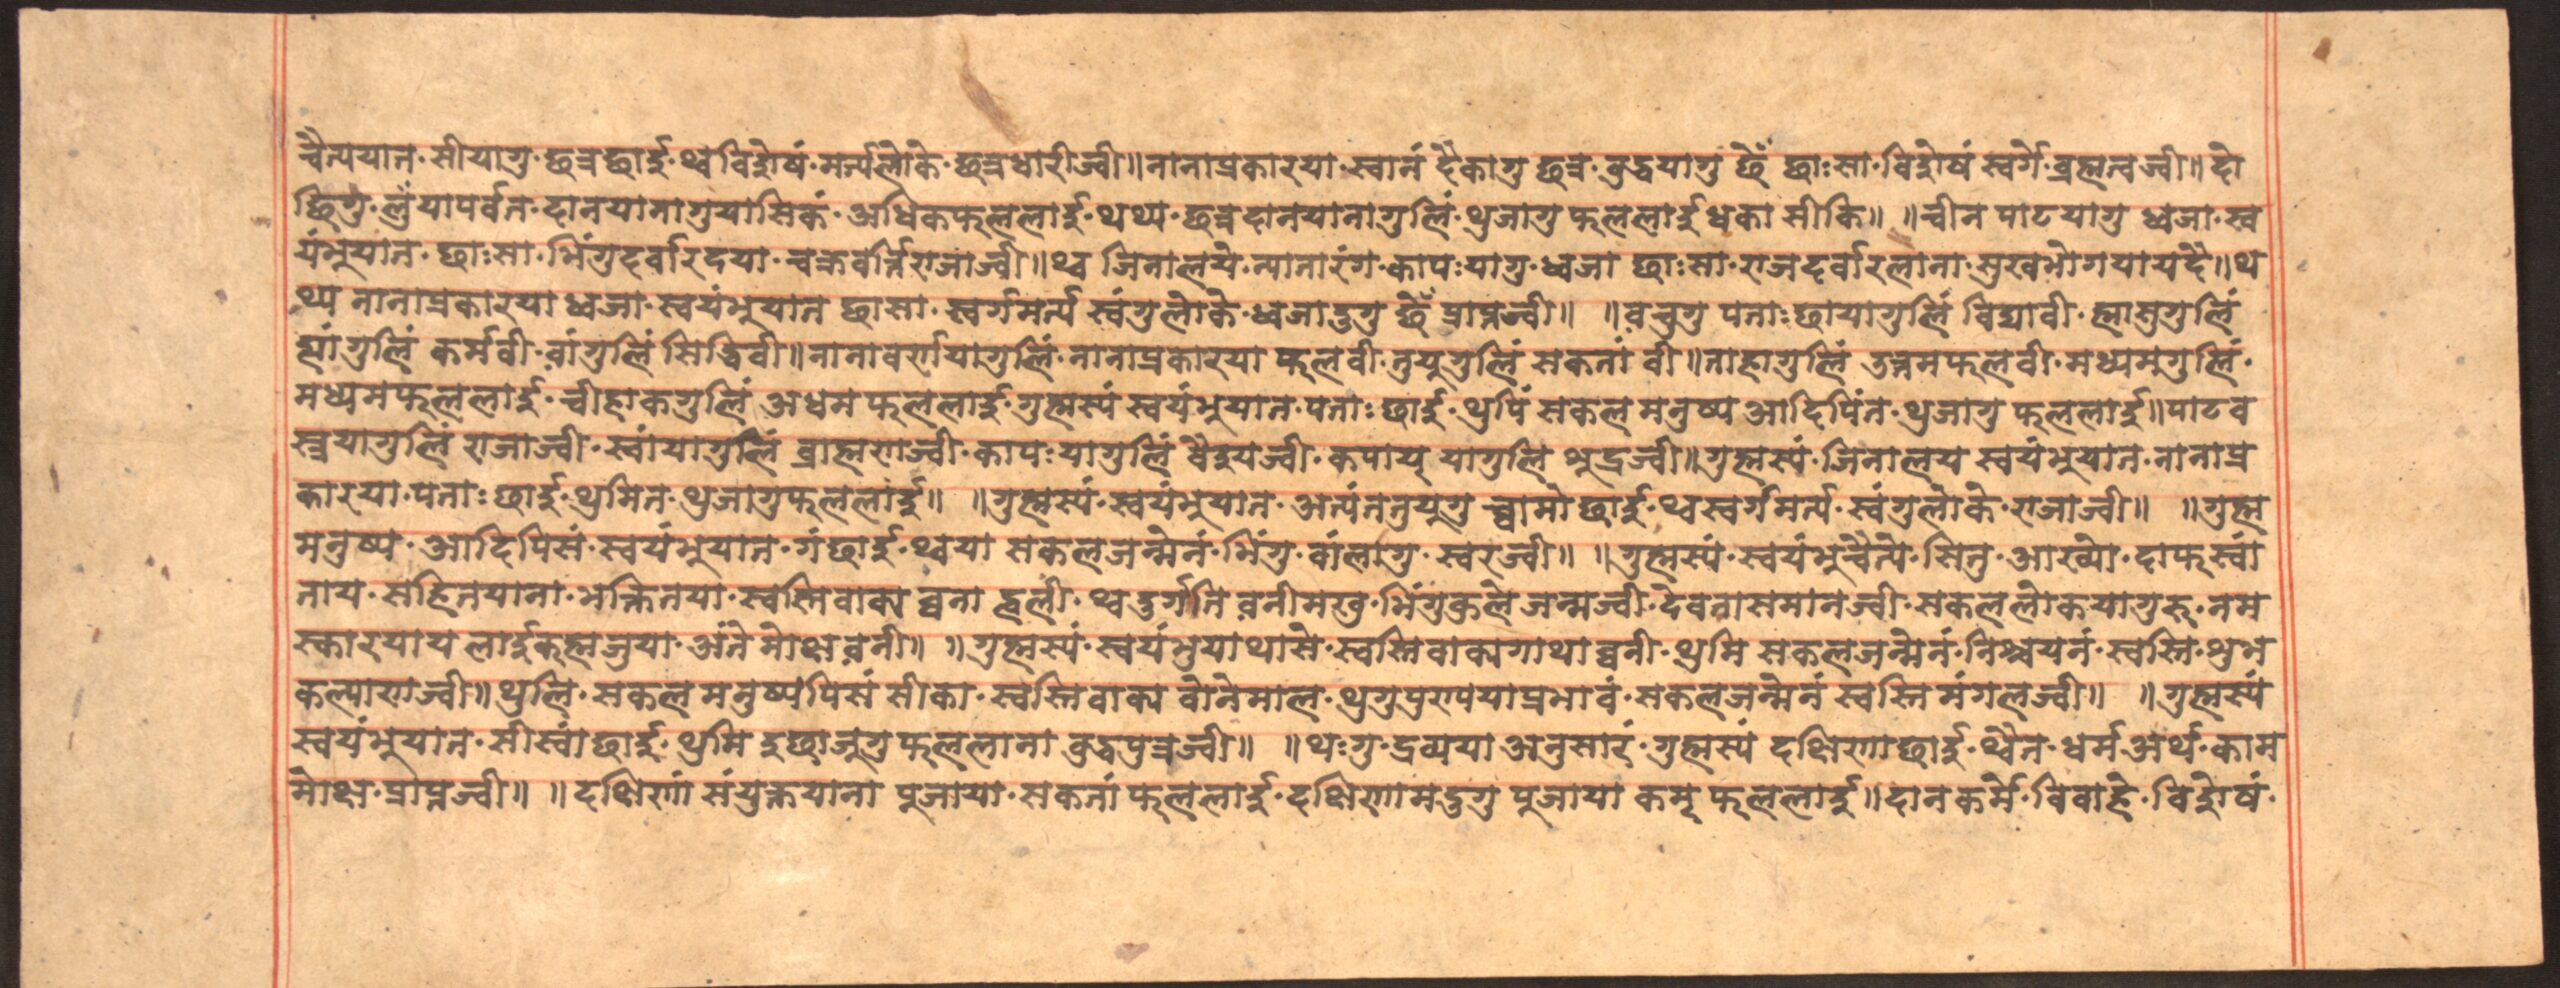 चैत्ययात·सीयागु·छत्रछाई·थ्वविशेषं·मर्त्यलोके·छत्रधारीज्वी॥नानाप्रकारया·स्वानं दैकागु छत्र·बुद्धयागु छेँ छाःसा·विशेषं स्वर्गे·ब्रह्मत्वज्वी॥दो
छिगु·लुंयापर्वत·दानयानागुयासिकं·अधिकफललाई·थथ्य·छत्रदानयानागुलिं·थुजागु फललाई धका सीकि॥ ॥चीन पाटयागु ध्वजा·स्व
यंभुयात·छाःसा·भिंगुदर्वारिदया·चक्रवर्त्तिराजाज्वी॥थ्व जिनालये·न्यानारंग·कापःयागु·ध्वजा छाःसा·राजदर्वारलाना·सुखभोगयायदै॥थ
थ्य नानाप्रकारया ध्वजा·स्वयंभुयात छासा·स्वर्गमर्त्य स्वंगुलोके·ध्वजादुगु छेँ प्राप्तज्वी॥ ॥वचुगु पताःछायागुलिं विद्यावी·ह्मासुगुलिं
ह्यांगुलिं कर्मवी·वांगुलिं सिद्धिवी॥नानावर्णयागुलिं·नानाप्रकारया फलवी·तुयूगुलिं सकतां वी॥ताहागुलिं उत्तमफलवी·मध्यमगुलिं·
मध्यमफललाई·चीहाकगुलिं अधमफललाई·गुह्मस्यं स्वयंभुयात·पताःछाई·थुपिं सकल मनुष्य आदिपिंत·थुजागु फललाई॥पाटव
स्त्रयागुलिं राजाज्वी·स्वांयागुलिं ब्राह्मणज्वी·कापःयागुलिं वैश्यज्वी·कपाय् यागुलि शूद्रज्वी॥गुह्मस्यं·जिनालय स्वयंभुयात·नानाप्र
कारया·पताःछाई·थुमित·थुजागुफललाई॥ ॥गुह्मस्यं·स्वयंभुयात·अत्यंततुयूगु च्वामोछाई·थ्वस्वर्गमर्त्य·स्वंगुलोके·राजाज्वी॥ ॥गुह्म
मनुष्य·आदिपिसं·स्वयंभुयात·गंछाई·थ्वया सकलजन्मेनं·भिंगु·वांलागु·स्वरज्वी॥ ॥गुह्मस्यं·स्वयंभुचैत्ये·सितु·आख्ये·दाफस्वां
नाय·सहितयाना·भक्तिनया·स्वस्तिवाक्य ब्वना ह्वली·थ्वदुर्गति वनीमखु·भिंगुकुले जन्मज्वी·देवतासमानज्वी·सकललोकयागुरु·नम
स्कारयाय लाईकह्मजुया·अंते मोक्षवनी॥ ॥गुह्मस्यं·स्वयंभुयाथासे·स्वस्तिवाक्यगाथाब्वनी·थुमि सकलजन्मेनं·निश्चयनं·स्वस्ति·शुभ
कल्याणज्वी॥थुलि·सकल मनुष्यपिसं सीका·स्वस्तिवाक्य वोनेमाल·थुगुपुण्ययाप्रभावं·सकलजन्मेनं स्वस्ति मंगलज्वी॥ ॥गुह्मस्यं
स्वयंभुयात·सीस्वांछाई·थुमि इछाजुगु फललाना बुद्धपुत्रज्वी॥ ॥थःगु·द्रव्यया अनुसारं·गुह्मस्यं दक्षिणाछाई·थ्वैत·धर्म अर्थ·काम
मोक्ष·प्राप्तज्वी॥ ॥दक्षिणां संयुक्तयाना पुजाया·सकतां फललाई·दक्षिणामदुगु पुजाया कम् फललाई॥दानकर्मे·विवाहे·विशेषं·